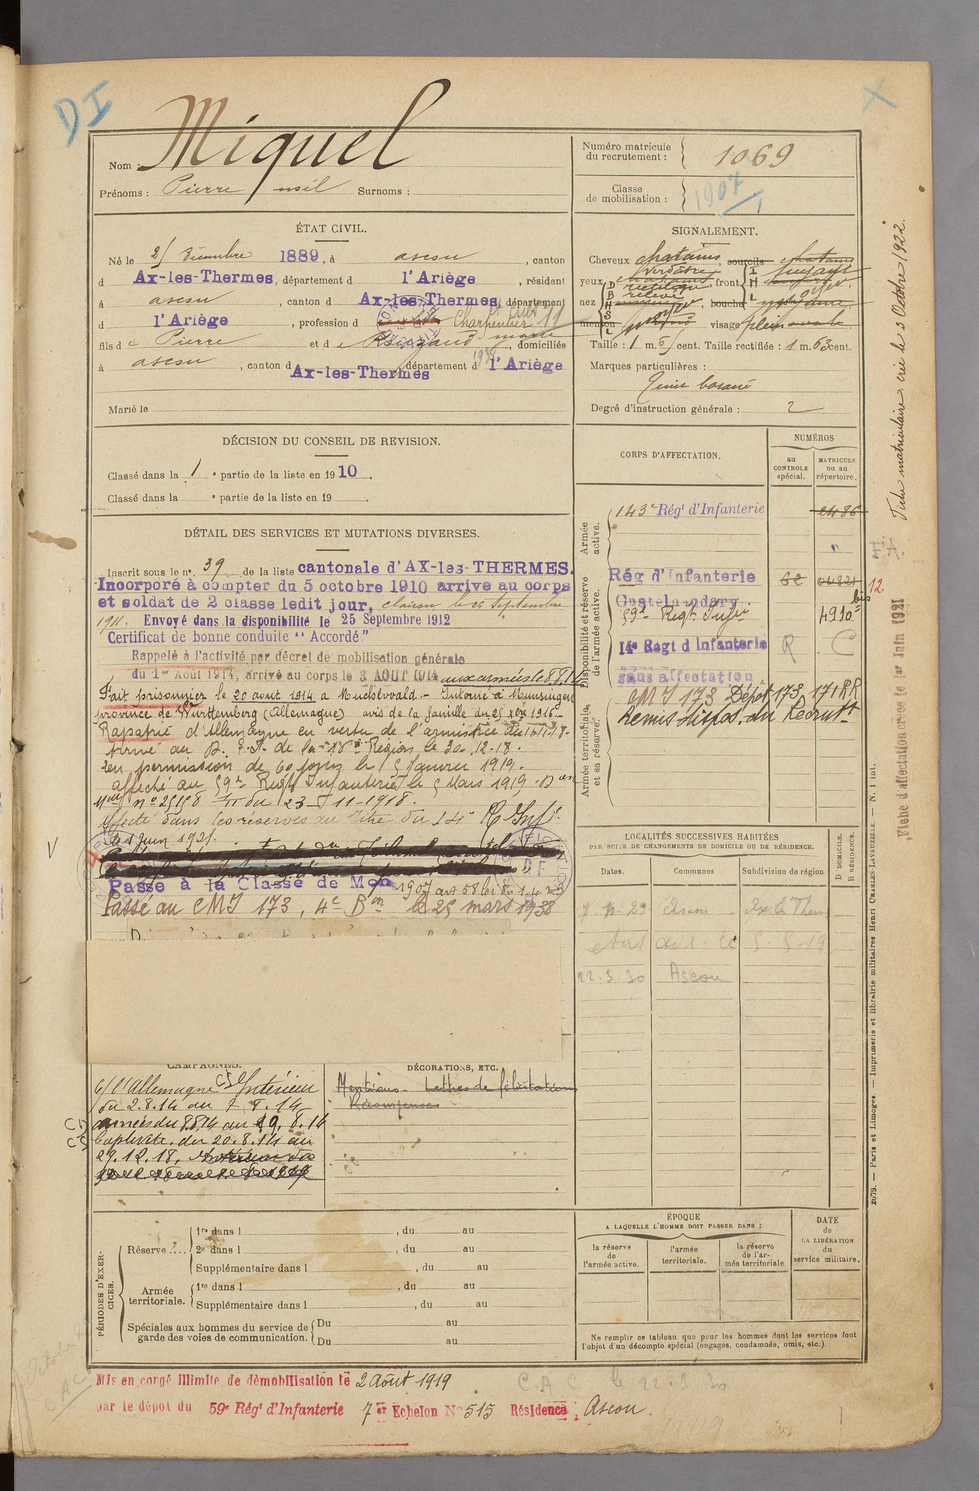 DI
X
Nom : Miquel
Prénoms : Pierre Surnoms :
Numéro matricule du recrutement : 1069
Classe de mobilisation : 1907
ÉTAT CIVIL.
Né le décembre 1889, à ascou, canton
d Ax-les-Thermes, département d l'Ariège, résidant
à ascou, canton d Ax-les-Thermes, département
d l'Ariège, profession d Charpentier
fils d e Pierre et d e marie, domiciliés
à ascou, canton d Ax-les-Thermes, département d l'Ariège
Marié le
SIGNALEMENT.
Cheveux chatains, sourcils chatains
yeux, front fuyant
nez, bouche
menton, visage plein ovale
Taille : 1 m. cent. Taille rectifiée : 1 m. 63 cent.
Marques particulières :
Degré d'instruction générale : 2
DÉCISION DU CONSEIL DE REVISION.
Classé dans la 1 e partie de la liste en 1910.
Classé dans la e partie de la liste en 19
CORPS D'AFFECTATION.
NUMÉROS
au CONTROLE spécial.
MATRICULE ou au répertoire.
Armée active.
143e Régt d'Infanterie 2486
"
Disponibilité et réserve de l'armée active.
Rég d'Infanterie
Castelnaudary
59e Regt Infie 4910 bis
12
14e Regt d'Infanterie R C
sans affectation
Armée territoriale et sa réserve.
CMI 173 Dépôt 173, 171 RR
Remis dispos. du Recrutt
DÉTAIL DES SERVICES ET MUTATIONS DIVERSES.
Inscrit sous le n° 39 de la liste cantonale d'AX-les-THERMES.
Incorporé à compter du 5 octobre 1910 arrive au corps
et soldat de 2 classe ledit jour, clairon le 26 septembre
1911. Envoyé dans la disponibilité le 25 Septembre 1912
Certificat de bonne conduite "Accordé"
Rappelé à l'activité par décret de mobilisation générale
du 1er Août 1914, arrivé au corps le 3 AOUT 1914 aux armées le 8.8.14
Fait prisonnier le 20 aout 1914 à - Interné à Munsingen
province de Württemberg (Allemagne) avis de la famille du
Rapatrié d'Allemagne en vertu de l'armistice du 11.11.18.
Arrivé au de la 18e Région le 30.12.18.
En permission de 60 jours le 5 Janvier 1919.
affecté au 59e Regt Infanterie le 5 Mars 1919
du 23-11-1918.
Affecté dans les réserves au titre du 14e R. Inf.
le 1 Juin 1921.
Passé à la Classe de Mob 1907 art 58 loi du 1.4.23
Passé au CMI 173, 4e Bon le 25 mars 1938
LOCALITÉS SUCCESSIVES HABITÉES
PAR SUITE DE CHANGEMENTS DE DOMICILE OU DE RÉSIDENCE.
Dates. Communes Subdivision de région D DOMICILE. R RÉSIDENCE.
Ascou
22.3.30 Ascou
CAMPAGNES.
C/ l'Allemagne Intérieur
du 2.8.14 au 7.8.14
armées du 8.8.14 au 19.8.14
Captivité du 20.8.14 au
29.12.18,
DÉCORATIONS, ETC.
Mentions - Lettres de félicitations
Récompenses
PÉRIODES D'EXERCICES.
Réserve ....
1re dans l , du au
2e dans l , du au
Supplémentaire dans l , du au
Armée territoriale.
1re dans l , du au
Supplémentaire dans l , du au
Spéciales aux hommes du service de garde des voies de communication.
Du au
Du au
ÉPOQUE
A LAQUELLE L'HOMME DOIT PASSER DANS :
la réserve de l'armée active.
l'armée territoriale.
la réserve de l'armée territoriale
DATE DE LA LIBÉRATION du service militaire.
Ne remplir ce tableau que pour les hommes dont les services font
l'objet d'un décompte spécial (engagés, condamnés, omis, etc.).
Mis en congé illimité de démobilisation le 2 Août 1919
par le dépôt du 59e Régt d'Infanterie 7er Echelon N° 515 Résidence, Ascou.
C A C le 22.3.30
Fiche matriculaire crée le 3 Octobre 1922.
Fiche d'affectation créée le 1er Juin 1921
2079. — Paris et Limoges. — Imprimerie et librairie militaires Henri CHARLES-LAVAUZELLE. — N. 1 int.